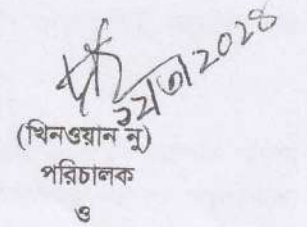 ২০২৪
(খিনওয়ান নু)
পরিচালক
ও